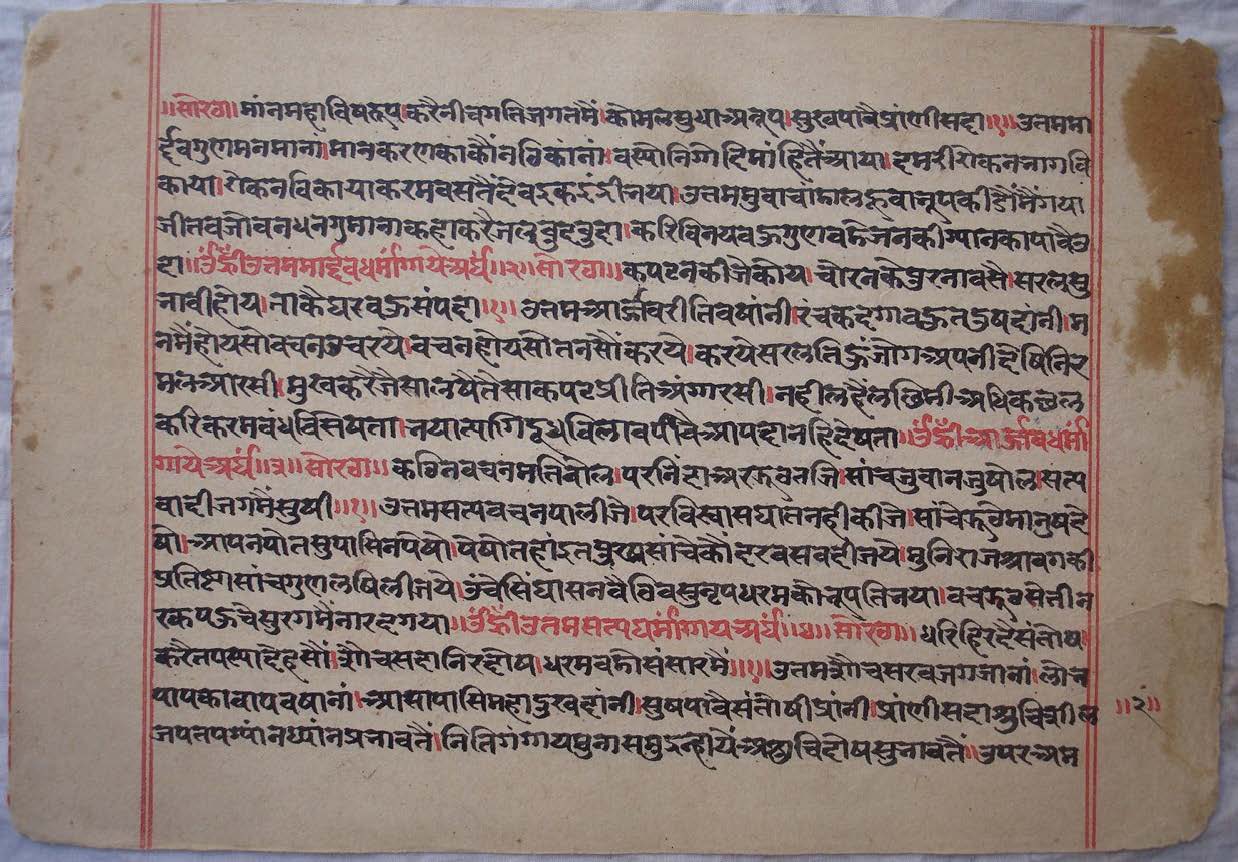 ॥सोरठा॥मांनमहाविषरूप।करैनीचगतिजगतमैं।कोमलसुधाअनूप।सुखपावैप्रांणीसदा॥१॥उत्तममा
र्द्दवगुणमनमाना।मानकरणकाकौंनठिकांनां।वस्योनिगोदमांहितैंआया।दमरीरोकनभागवि
काया।रोकनविकायाकरमवसतैंदेवइकइंद्रीभया।उत्तममुवाचांडालहूवाभूपकीडौंमैंगया
जीतवजोवनधनगुमानाकहाकरैजलबुदबुदा।करिविनयवहुगुणवडेजनकीग्यानकापावैउ
दा॥उँह्रीँउत्तममार्द्दवधर्मांगायेअर्घं॥२॥सोरठा॥कपटनकीजैकोय।चोरनकेपुरनावसै।सरलसु
भावीहोय।ताकैघरवहुसंपदा॥१॥उत्तमआर्ज्जवरीतिवषांनी।रंचकदगावहुतदुषदांनी।म
नमैंहोयसोवचनउचरये।वचनहोयसोतनसौंकरये।करयेसरलतिहुंजोगअपनीदेषिनिर
मलआरसी।मुखकरैजैसालषैतैसाकपटप्रीतिअंगारसी।नहीलहैंलछिमीअधिकछल
करिकरमवंधविसेषता।भयात्यागिदूधविलावपीवैआपदानहिदेषता॥उँह्रीँआर्ज्जवधर्मां
गायेअर्घं॥३॥सोरठा॥कठिनवचनमतिबोल।परनिंदाअरझूठतजि।सांचजुवानजुषोल।सत्य
वादीजगमैंसुषी॥१॥उत्तमसत्यवचनपालीजै।परविस्वासघातनहीकीजै।सांचेझूठेमानुषदे
षो।आपनपोतसुपासिनपेषो।पेषोतहांइतपुरषसांचेकौंदरवसवदीजये।मुनिराजश्रावगकी
प्रतिष्टासांचगुणलषिलीजये।उंचैसिंघासनवैठिवसुनृपधरमकाभूपतिभया।वचझूठसेतीन
रकपहुंचैसुरगमैंनारदगया॥उँह्रीँउत्तमसत्यधर्मांगायअर्घं॥४॥सोरठा॥धरिहिरदैसंतोष।
करैतपस्यादेहसौं।शौचसदानिरदोष।धरमवडोसंसारमैं॥१॥उत्तमशौचसरवजगजानां।लोभ
पापकावापवषानां।आसापासिमहादुखदांनी।सुषपावैसंतोषीप्रांनी।प्रांणीसदाशुचिशील
जपतपग्यांनध्यांनप्रभावतैं।नितिगंगायमुनासमुद्रन्हायेंअशुचिदोषसुभावतैं।उपरअम
॥२॥